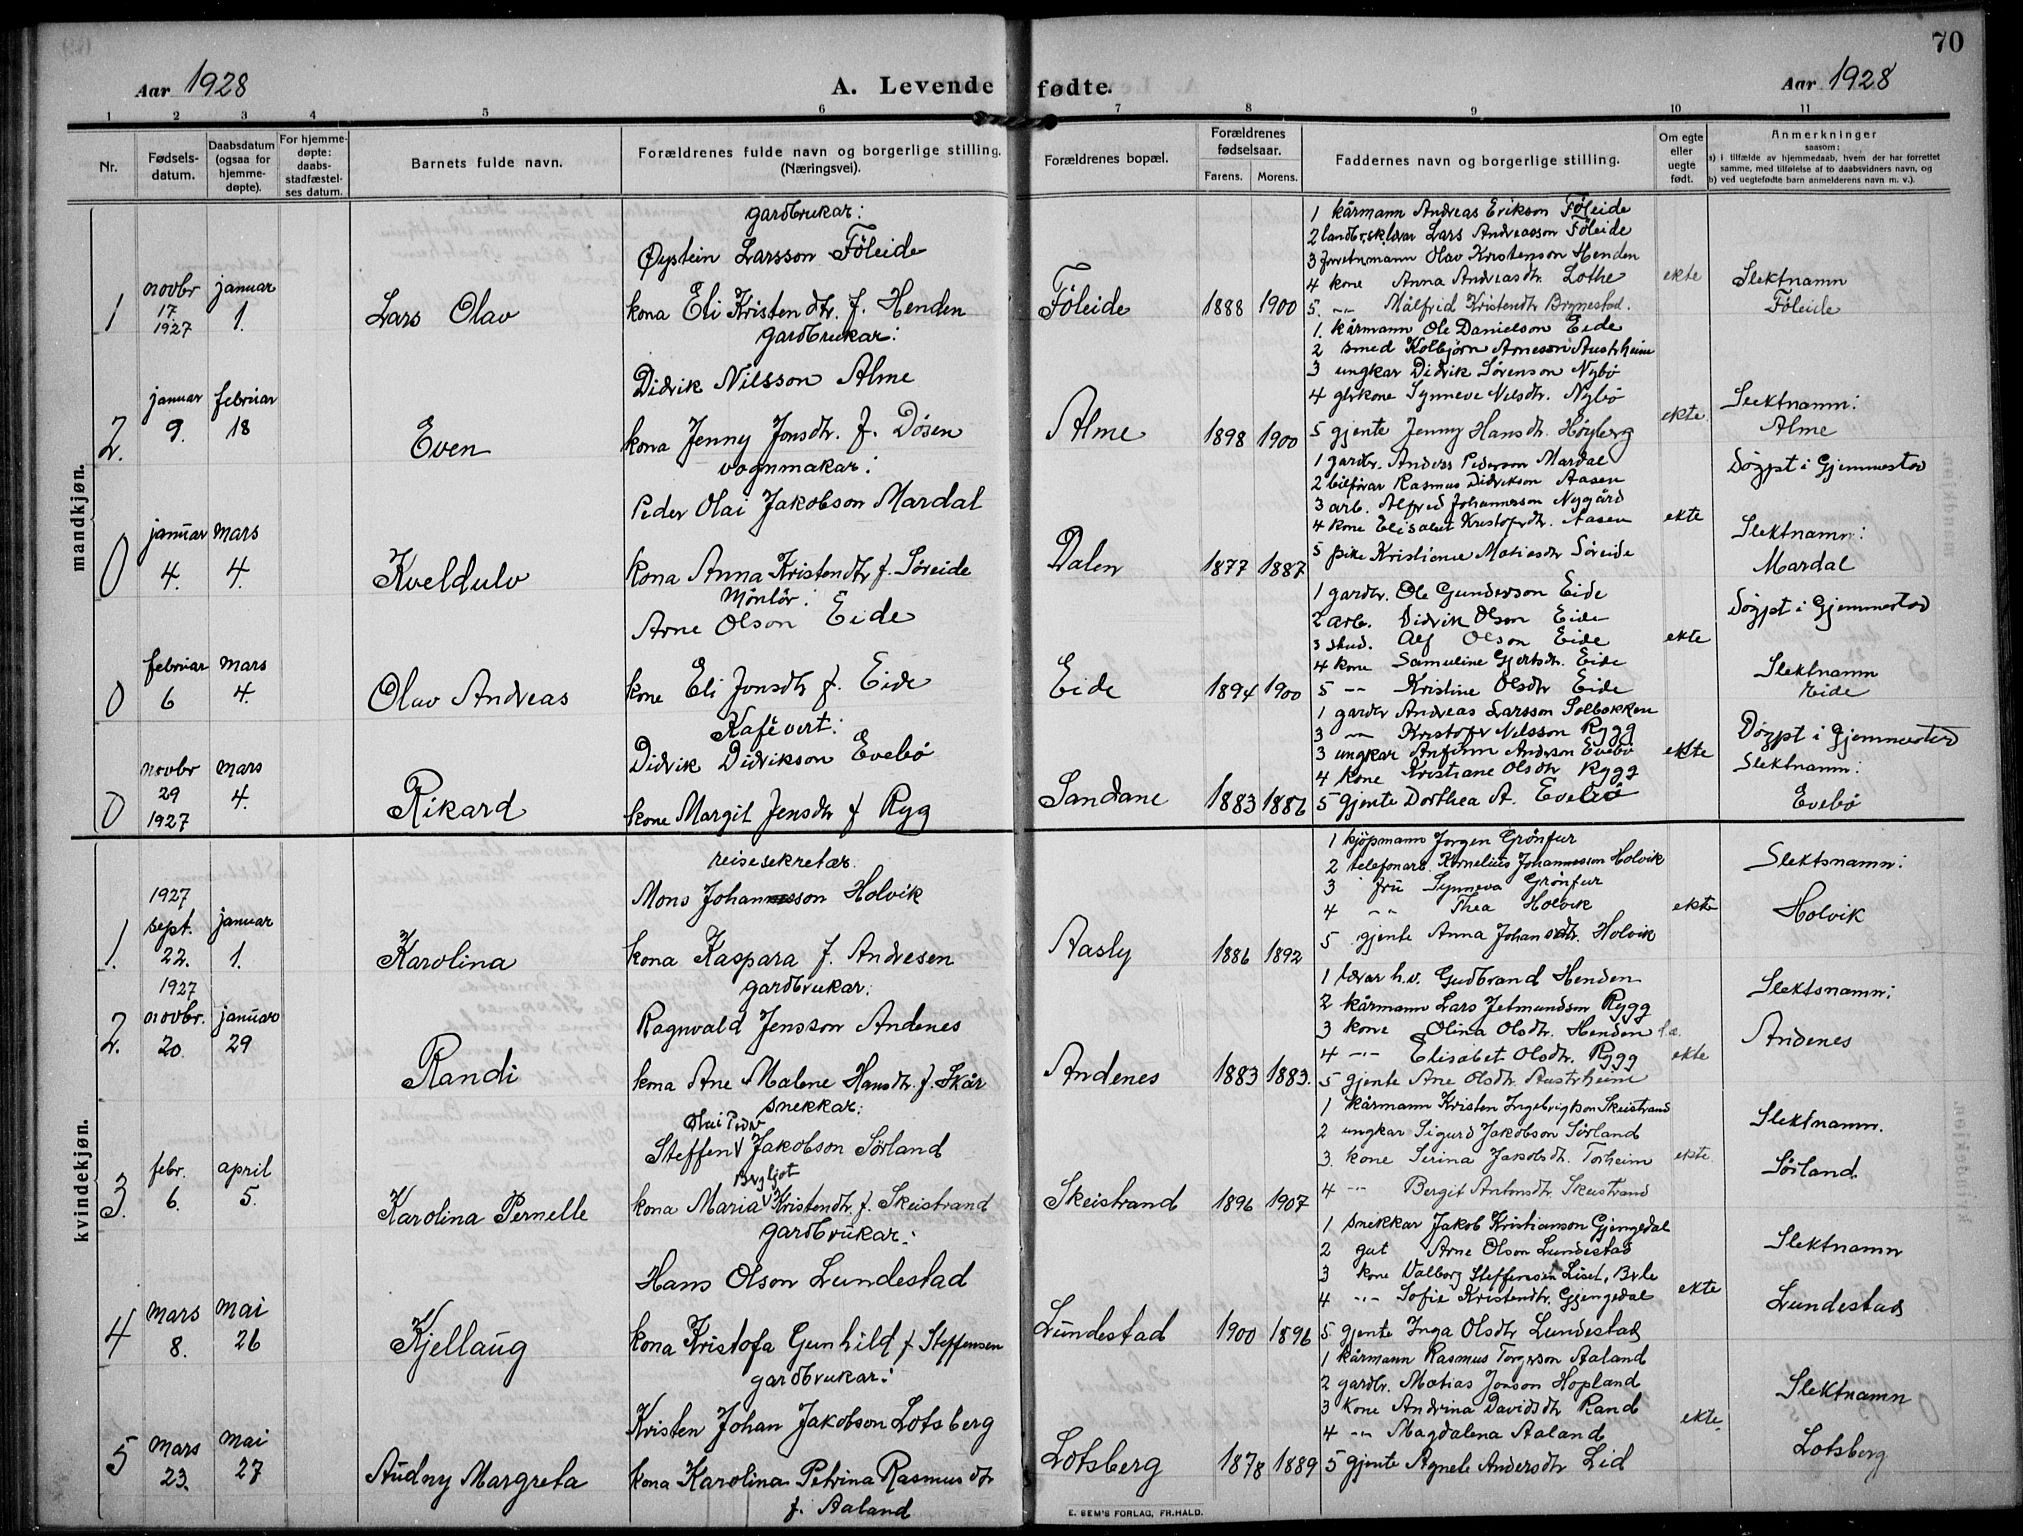 70
Aar 1928
A. Levende fødte.
Aar 1928
1 2 3 4 5 6 7 8 9 10 11
Nr.
Fødsels-datum.
Daabsdatum (ogsaa for hjemme-døpte).
For hjemme-døpte: daabs-stadfæstel-ses datum.
Barnets fulde navn.
Forældrenes fulde navn og borgerlige stilling. (Næringsvei).
Forældrenes bopæl.
Forældrenes fødselsaar.
Farens. Morens.
Faddernes navn og borgerlige stilling.
Om egte eller uegte født.
Anmerkninger
saasom:
a) i tilfælde av hjemmedaab, hvem der har forrettet samme, med tilføielse af to daabsvidners navn, og
b) ved uegtefødte barn anmelderens navn m. v.).
mandkjøn.
1
novbr 17. 1927
januar 1.
Lars Olav
gardbrukar:
Øystein Larsson Föleide
kona Eli Kristendtr. f. Henden
Föleide
1888 1900
1 kårmann Andreas Erikson Föleide
2 landbr.sk.lærar Lars Andreasson Föleide
3 Olav Kristenson Henden
4 kone Anna Andreasdtr. Lothe
5. -"- Målfrid Kristendtr Brynestad.
ekte
Slektnamn
Föleide
2.
januar 9.
februar 18
Even
gardbrukar:
Didrik Nilsson Alme
kona Jenny Jonsdtr. f. Dösen
Alme
1898 1900
1. kårmann Ole Danielson Eide
2 smed Kolbjörn Arneson Austrheim
3 ungkar Didrik Sörenson Nybö
4 gbr.kone Synneve Nilsdtr. Nybö
5 gjente Jenny Hansdtr. Höyberg
ekte
Slektnamn:
Alme
0
januar 4.
mars 4.
Kveldulv
vognmakar:
Peder Olai Jakobson Mardal
kona Anna Kristendtr f. Söreide
Dalen
1877 1887
1 gardbr. Anders Pederson Mardal
2 bilförar Rasmus Didrikson Aasen
3 arb. Alfred Johannesson Nygård
4 kone Elisabet Kristofrdtr. Aasen
5 pike Kristianne Matiasdtr Söreide
ekte
Döypt i Gjemmestad
Slektnamn:
Mardal
0
februar 6
mars 4.
Olav Andreas
Möntör:
Arne Olson Eide
kone Eli Jonsdtr f. Eide
Eide
1894 1900
1 gardbr. Ole Gunderson Eide
2 arb. Didrik Olson Eide
3 stud. Alf Olson Eide
4 kone Samueline Gjertsdtr. Eide
5 -"- Kristine Olsdtr Eide
ekte
Döypt i Gjemmestad
Slektnamn
Eide
0
novbr 29 1927
mars 4.
Rikard
Kafévert:
Didrik Didrikson Evebö
kone Margit Jensdtr f Ryg
Sandane
1883 1886
1 gardbr Andreas Larsson Solbakken
3 -"- Kristofer Nilsson Rygg
3 ungkar Anfinn Anderson Evebö
4 kone Kristiane Olsdtr Rygg
5 gjente Dorthea A. Evebö
ekte
Döypt i Gjemmestad
Slektnamn:
Evebö
kvindekjøn.
1.
1927 sept. 22.
januar 1.
Karolina
reisesekretær
Mons Johannesson Holvik
kona Kaspara f. Andresen
Aasly
1886 1892
1 kjöpmann Jorgen Grönfur
2 telefonarb. Kornelius Johannesson Holvik
3 fru Synneva Grönfur
4 -"- Thea Holvik
5 gjente Anna Johansdtr. Holvik
ekte
Slektsnamn:
Holvik
2.
1927 novbr. 20.
januar 29
Randi
gardbrukar:
Ragnvald Jensson Andenes
kona Ane Malene Hansdtr. f. Skår
Andenes
1883 1883.
1 lærar h.v. Gudbrand Henden
2 kårmann Lars Jetmundson Rygg
3 kone Olina Olsdtr. Henden
4 -"- Elisabet Olsdtr. Rygg
5 gjente Ane Olsdtr. Austrheim
ekte
Slektsnamn:
Andenes
3.
febr. 6.
april 5.
Karolina Pernelle
snekkar:
Olai Peder
Steffen V Jakobson Sörland
Bergljot
kona Maria V Kristendtr. f. Skeistrand
Skeistrand
1896 1907
1 kårmann Kristen Ingebrigtson Skeistrand
2 ungkar Sigurd Jakobson Sörland
3. kone Serina Jakobsdtr. Torheim
4 -"- Bergit Antonsdtr. Skeistrand
ekte
Slektnamn.
Sörland
4
mars 8.
mai 26
Kjellaug
gardbrukar:
Hans Olson Lundestad
kona Kristofa Gunhild f Steffensen
Lundestad
1900 1896
1 snekkar Jakob Kristianson Gjengedal
2 gut Arne Olson Lundestad
3 kone Valborg Steffensen Liset, Brle
4 -"- Sofie Kristendtr. Gjengedal
5. gjente Inga Olsdtr Lundestad
ekte
Slektnamn
Lundestad
5
mars 23.
mai 27
Audny Margreta
gardbrukar:
Kristen Johan Jakobson Lotsberg
kona Karolina Petrina Rasmusdtr
f. Aaland
Lotsberg
1878 1889
1 kårmann Rasmus Torgerson Aaland
2 gardbr. Matias Jonson Hopland
3 kone Andrina Davidsdtr Rand
4 -"- Magdalena Aaland
5 gjente Agnele Andersdtr Lid
ekte
Slektnamn
Lotsberg
E. SEM'S FORLAG, FR.HALD.